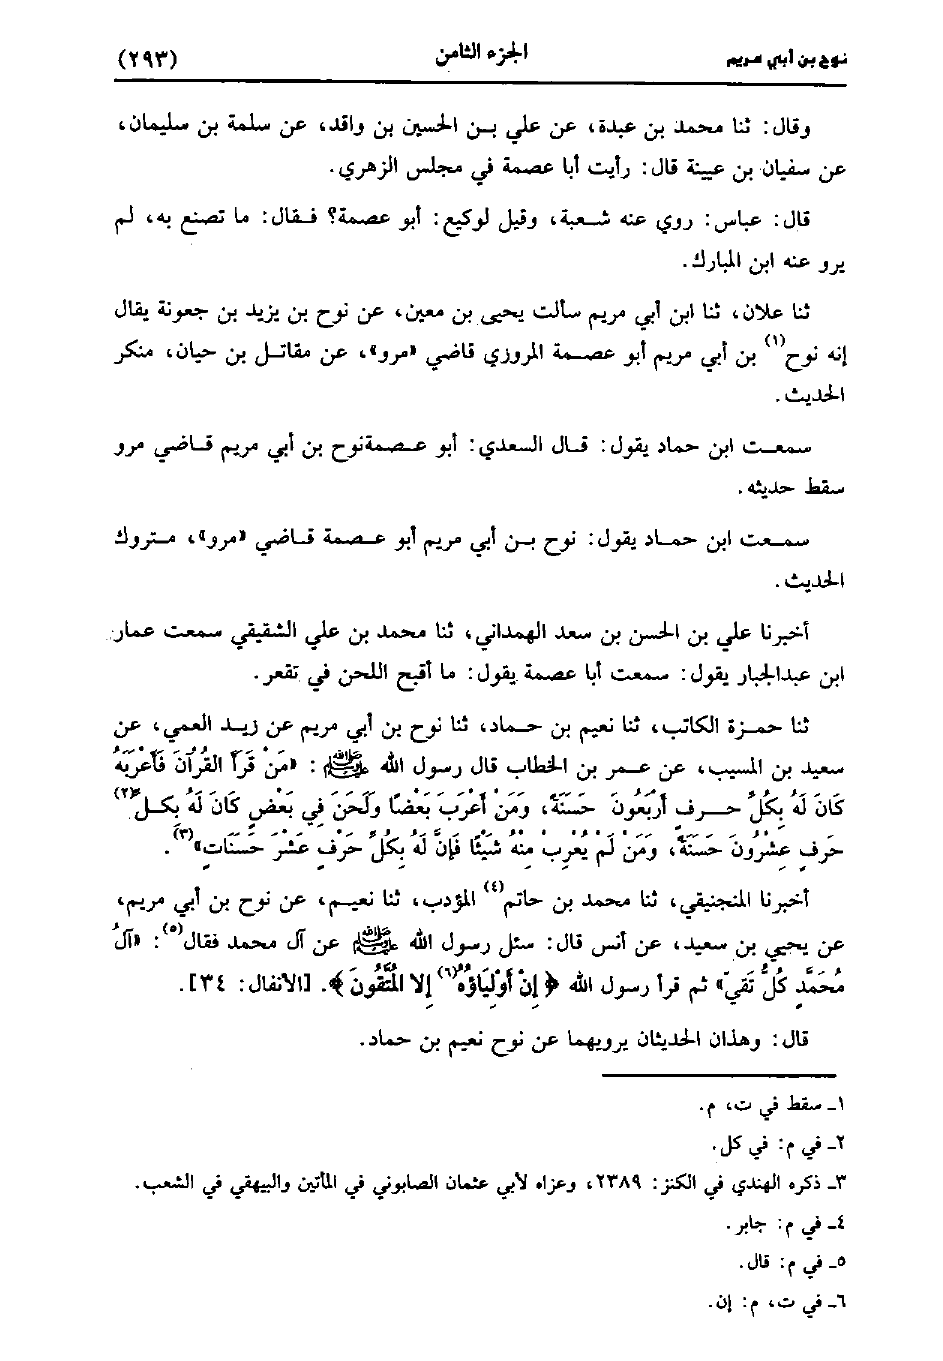 نوح بن أبي مريم الجزء الثامن (٢٩٣)
وقال: ثنا محمد بن عبدة، عن علي بـن الحسين بن واقد، عن سلمة بن سليمان،
عن سفيان بن عيينة قال: رأيت أبا عصمة في مجلس الزهري.
قال: عباس: روي عنه شـعبة، وقيل لوكيع: أبو عصمة؟ فـقال: ما تصنع به، لم
يرو عنه ابن المبارك.
ثنا علان، ثنا ابن أبي مريم سألت يحيى بن معين، عن نوح بن يزيد بن جعونة يقال
إنه نوح(١) بن أبي مريم أبو عصـمة المروزي قاضي «مرو»، عن مقاتـل بن حيان، منكر
الحديث.
سمعـت ابن حماد يقول: قـال السعدي: أبو عـصمةنوح بن أبي مريم قـاضي مرو
سقط حديثه.
سمـعت ابن حمـاد يقول: نوح بـن أبي مريم أبو عـصمة قـاضي «مرو»، متـروك
الحديث.
أخبرنا علي بن الحسن بن سعد الهمداني، ثنا محمد بن علي الشقيقي سمعت عمار
ابن عبدالجبار يقول: سمعت أبا عصمة يقول: ما أقبح اللحن في تقعر.
ثنا حمـزة الكاتب، ثنا نعيم بن حـماد، ثنا نوح بن أبي مريم عن زيـد العمي، عن
سعيد بن المسيب، عن عمر بن الخطاب قال رسول الله ﷺ: «مَنْ قَرَأَ القُرآنَ فَأعْرَبَهُ
كَانَ لَهُ بِكُلِّ حـرف أرْبَعُونَ حَسَنَةً، وَمَنْ أعْرَبَ بَعْضًا ولَحَنَ فِي بَعْضٍ كَانَ لَهُ بِكـلِّ(٢)
حَرفٍ عِشْرُونَ حَسَنَةً، وَمَنْ لَمْ يُعْرِبْ مِنْهُ شَيْئًا فَإنَّ لَهُ بِكُلِّ حَرْفٍ عَشْرَ حَسَنَاتٍ»(٣).
أخبرنا المنجنيقي، ثنا محمد بن حاتم(٤) المؤدب، ثنا نعيـم، عن نوح بن أبي مريم،
عن يحيى بن سعيد، عن أنس قال: سئل رسول الله ﷺ عن آل محمد فقال(٥): «آلُ
مُحَمَّدٍ كُلُّ تَقيّ» ثم قرأ رسول الله ﴿إِنْ أَوْلِيَاؤُهُ(٦) إِلا المُتَّقُونَ﴾. [الأنفال: ٣٤].
قال: وهذان الحديثان يرويهما عن نوح نعيم بن حماد.
١ـ سقط في ت، م.
٢ـ في م: في كل.
٣ـ ذكره الهندي في الكنز: ٢٣٨٩، وعزاه لأبي عثمان الصابوني في المأتين والبيهقي في الشعب.
٤ـ في م: جابر.
٥ـ في م: قال.
٦ـ في ت، م: إن.